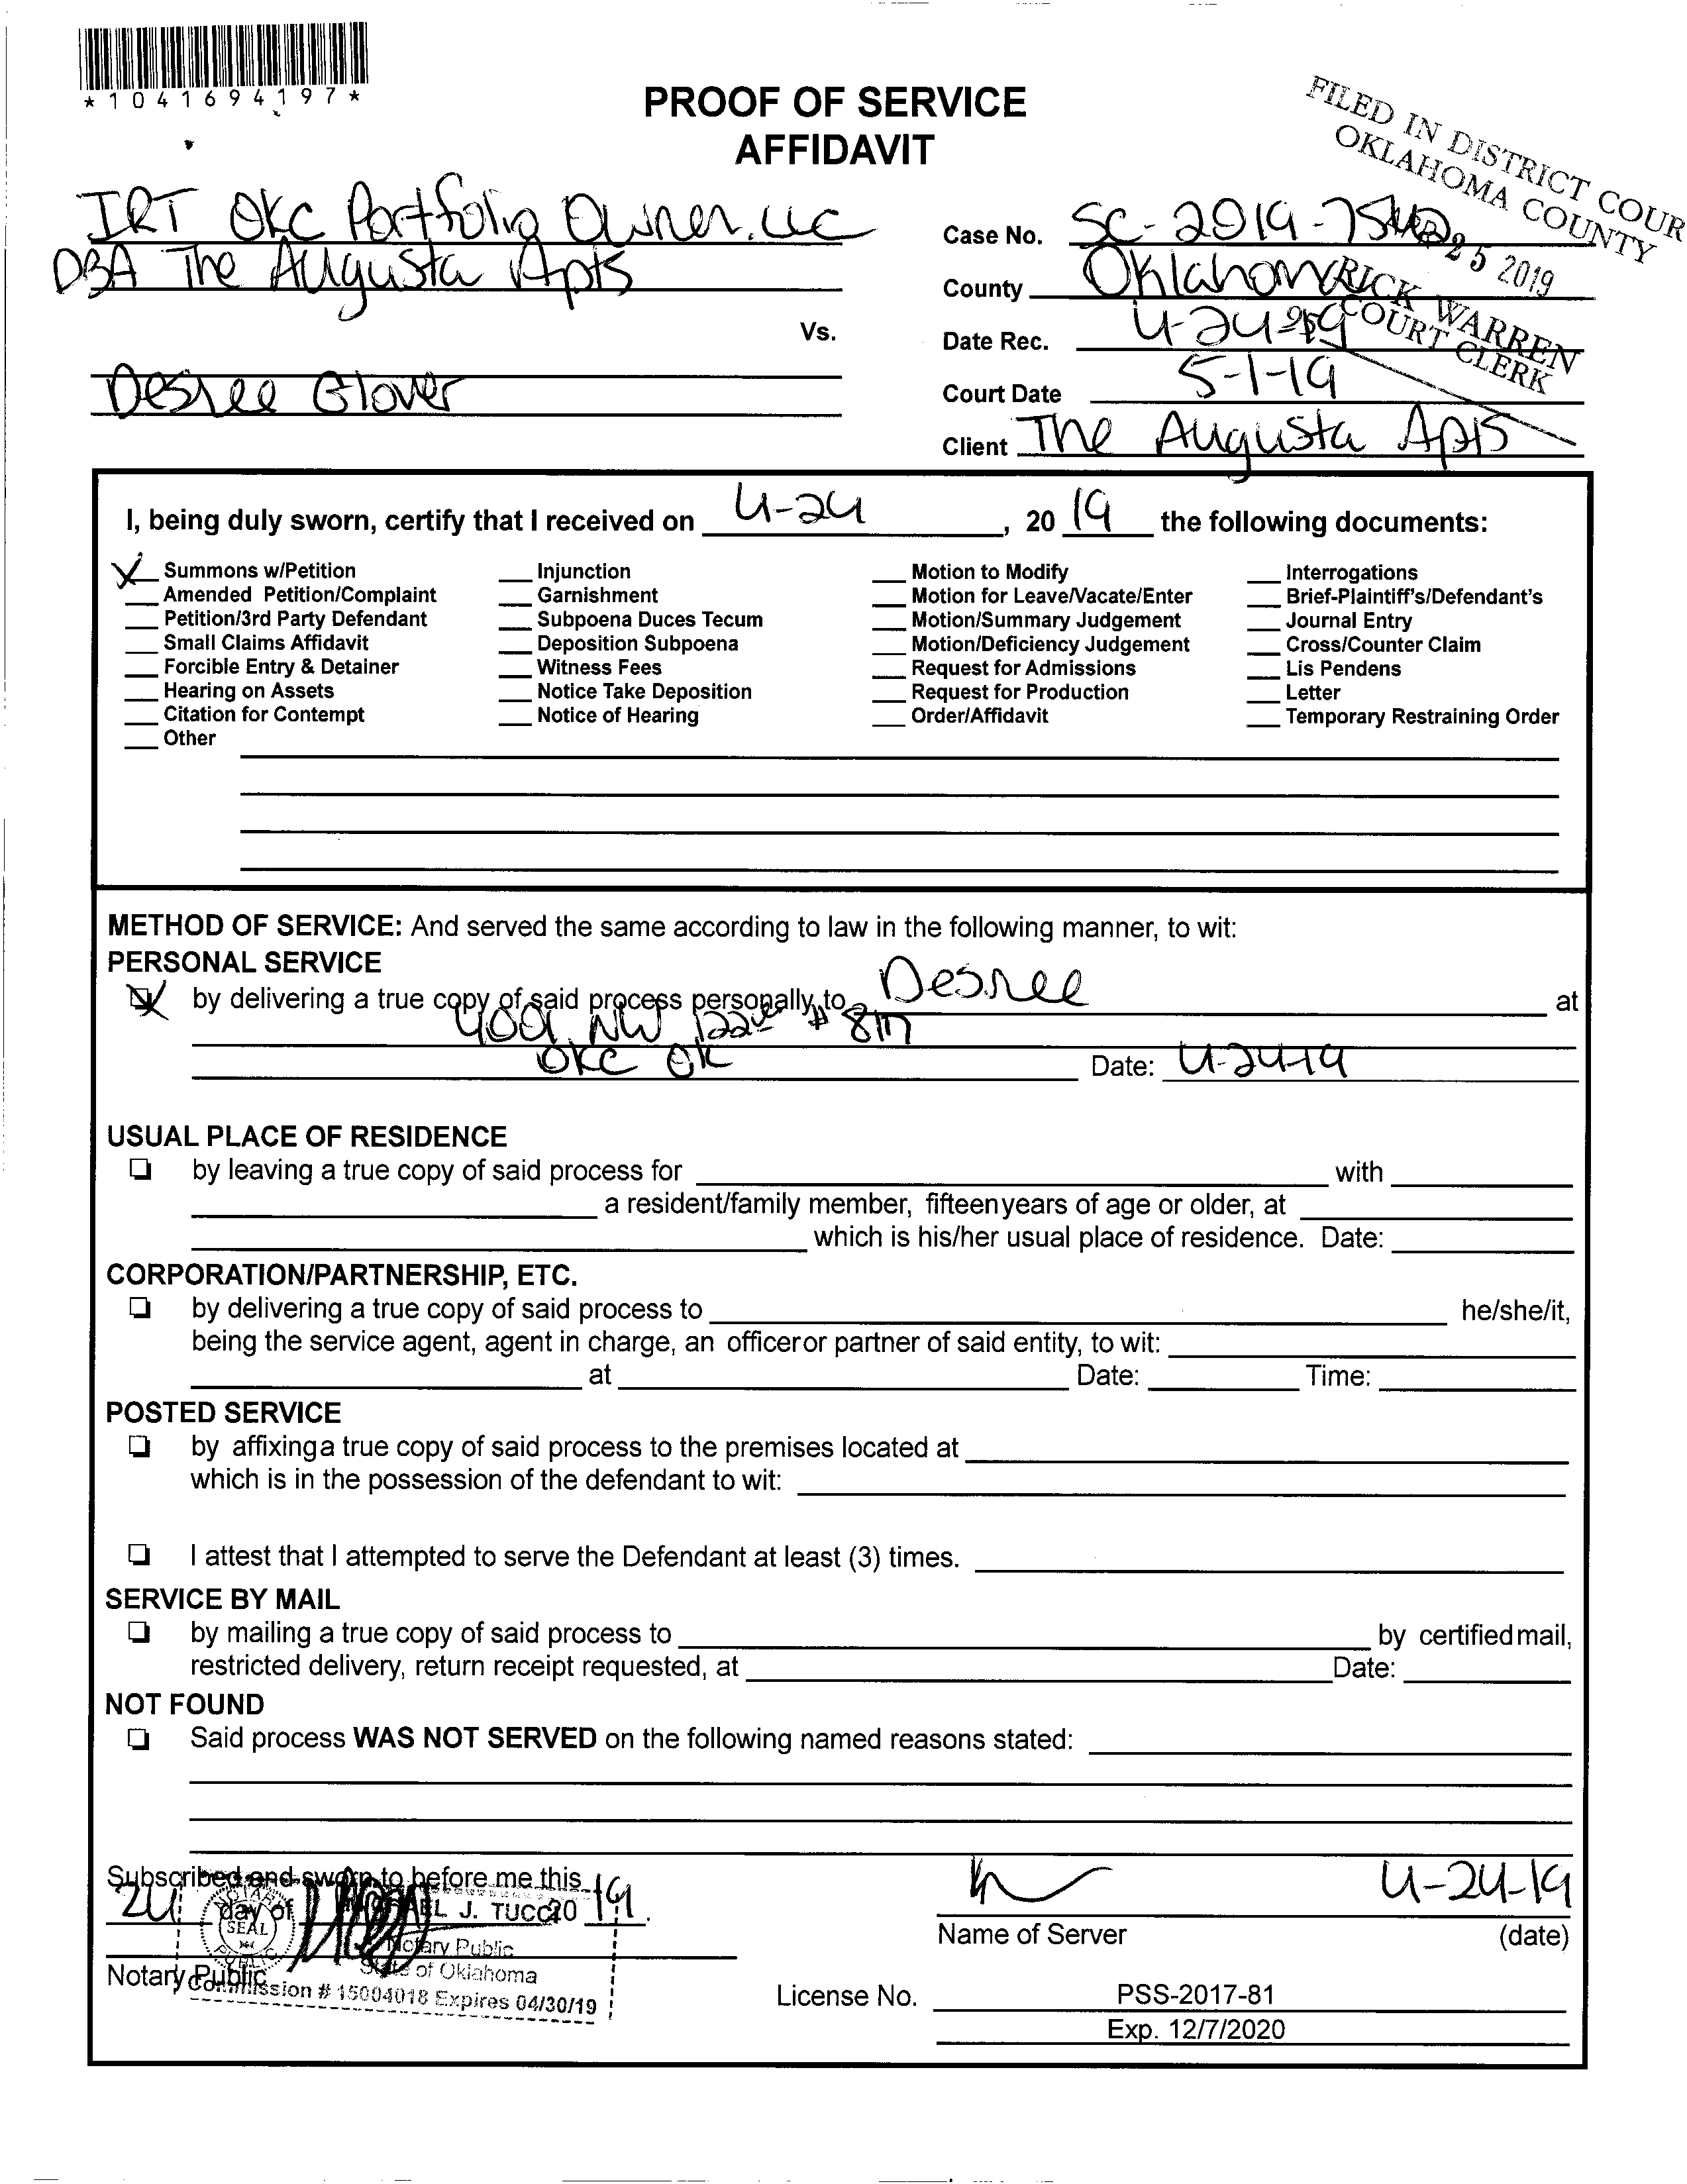 *1041694197*
PROOF OF SERVICE
AFFIDAVIT
FILED IN DISTRICT COUR
OKLAHOMA COUNTY
APR 25 2019
RICK WARREN
COURT CLERK
IRT OKC Portfolio Owner, LLC
DBA The Augusta Apts
Vs.
Desree Glover
Case No. SC-2019-
County Oklahoma
Date Rec. 4-24-19
Court Date 5-1-19
Client The Augusta Apts
I, being duly sworn, certify that I received on 4-24, 2019 the following documents:
Summons w/Petition
Amended Petition/Complaint
Petition/3rd Party Defendant
Small Claims Affidavit
Forcible Entry & Detainer
Hearing on Assets
Citation for Contempt
Other
Injunction
Garnishment
Subpoena Duces Tecum
Deposition Subpoena
Witness Fees
Notice Take Deposition
Notice of Hearing
Motion to Modify
Motion for Leave/Vacate/Enter
Motion/Summary Judgement
Motion/Deficiency Judgement
Request for Admissions
Request for Production
Order/Affidavit
Interrogations
Brief-Plaintiff's/Defendant's
Journal Entry
Cross/Counter Claim
Lis Pendens
Letter
Temporary Restraining Order
METHOD OF SERVICE: And served the same according to law in the following manner, to wit:
PERSONAL SERVICE
by delivering a true copy of said process personally to Desree at
4001 NW 122nd #
OKC OK Date: 4-24-19
USUAL PLACE OF RESIDENCE
by leaving a true copy of said process for with
a resident/family member, fifteen years of age or older, at
which is his/her usual place of residence. Date:
CORPORATION/PARTNERSHIP, ETC.
by delivering a true copy of said process to he/she/it,
being the service agent, agent in charge, an officer or partner of said entity, to wit:
at Date: Time:
POSTED SERVICE
by affixing a true copy of said process to the premises located at
which is in the possession of the defendant to wit:
I attest that I attempted to serve the Defendant at least (3) times.
SERVICE BY MAIL
by mailing a true copy of said process to by certified mail,
restricted delivery, return receipt requested, at Date:
NOT FOUND
Said process WAS NOT SERVED on the following named reasons stated:
Subscribed and sworn to before me this
24 day of 20 19.
Notary Public
SEAL
J. TUCCI
Notary Public
State of Oklahoma
Commission # 15004018 Expires 04/30/19
4-24-19
Name of Server (date)
License No. PSS-2017-81
Exp. 12/7/2020